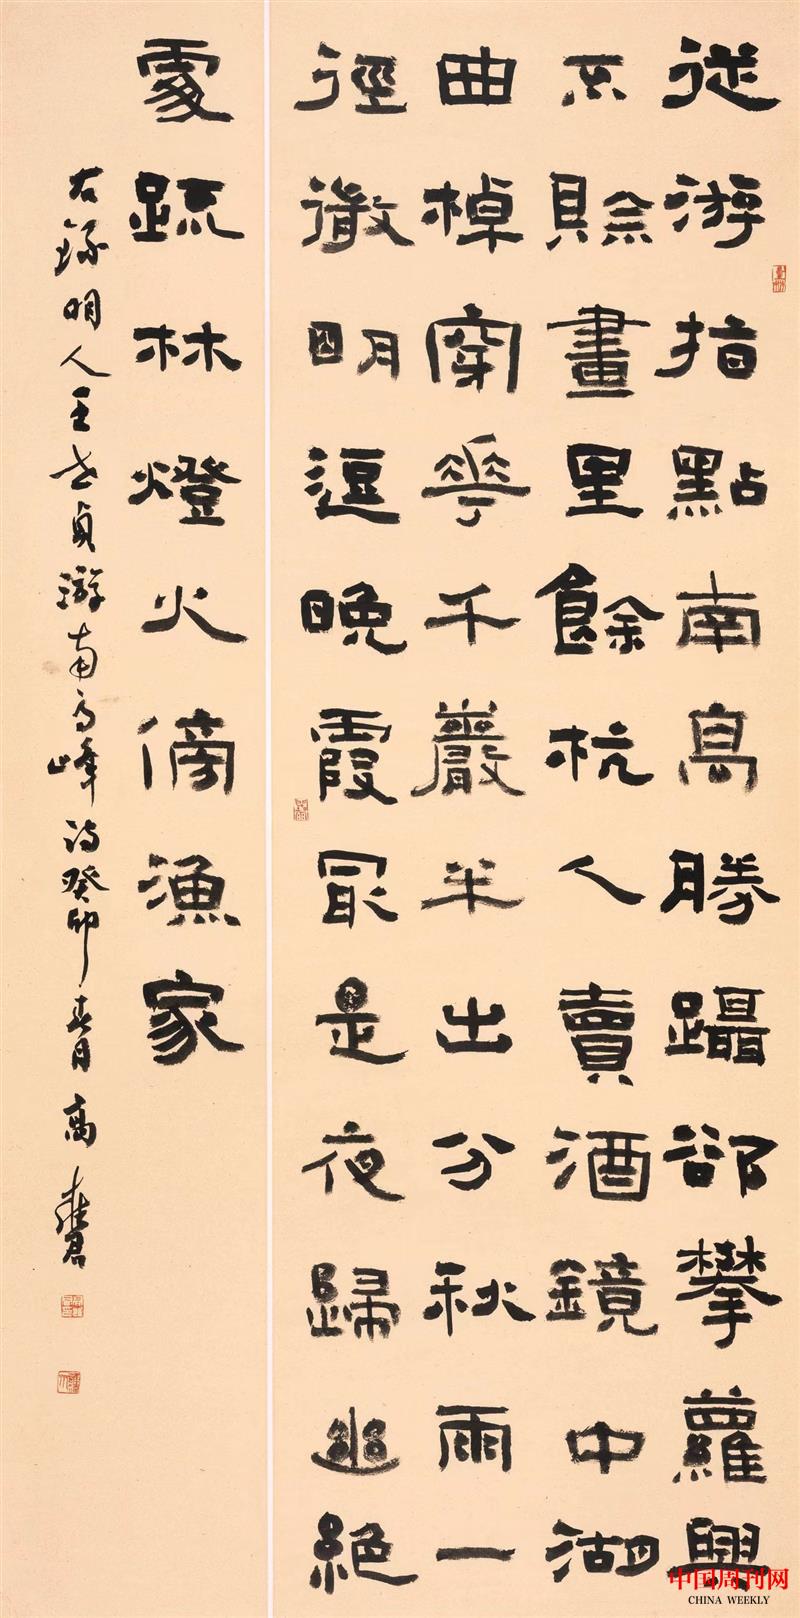 從游指點南高勝躡郤攀蘿興
不賒畫里餘杭人賣酒鏡中湖
曲棹穿花千巖半出分秋雨一
徑微明逗晚霞最是夜歸幽絕
處疏林燈火傍漁家
右錄明人王世貞游南高峰詩癸卯春月高
中国周刊网
CHINA WEEKLY